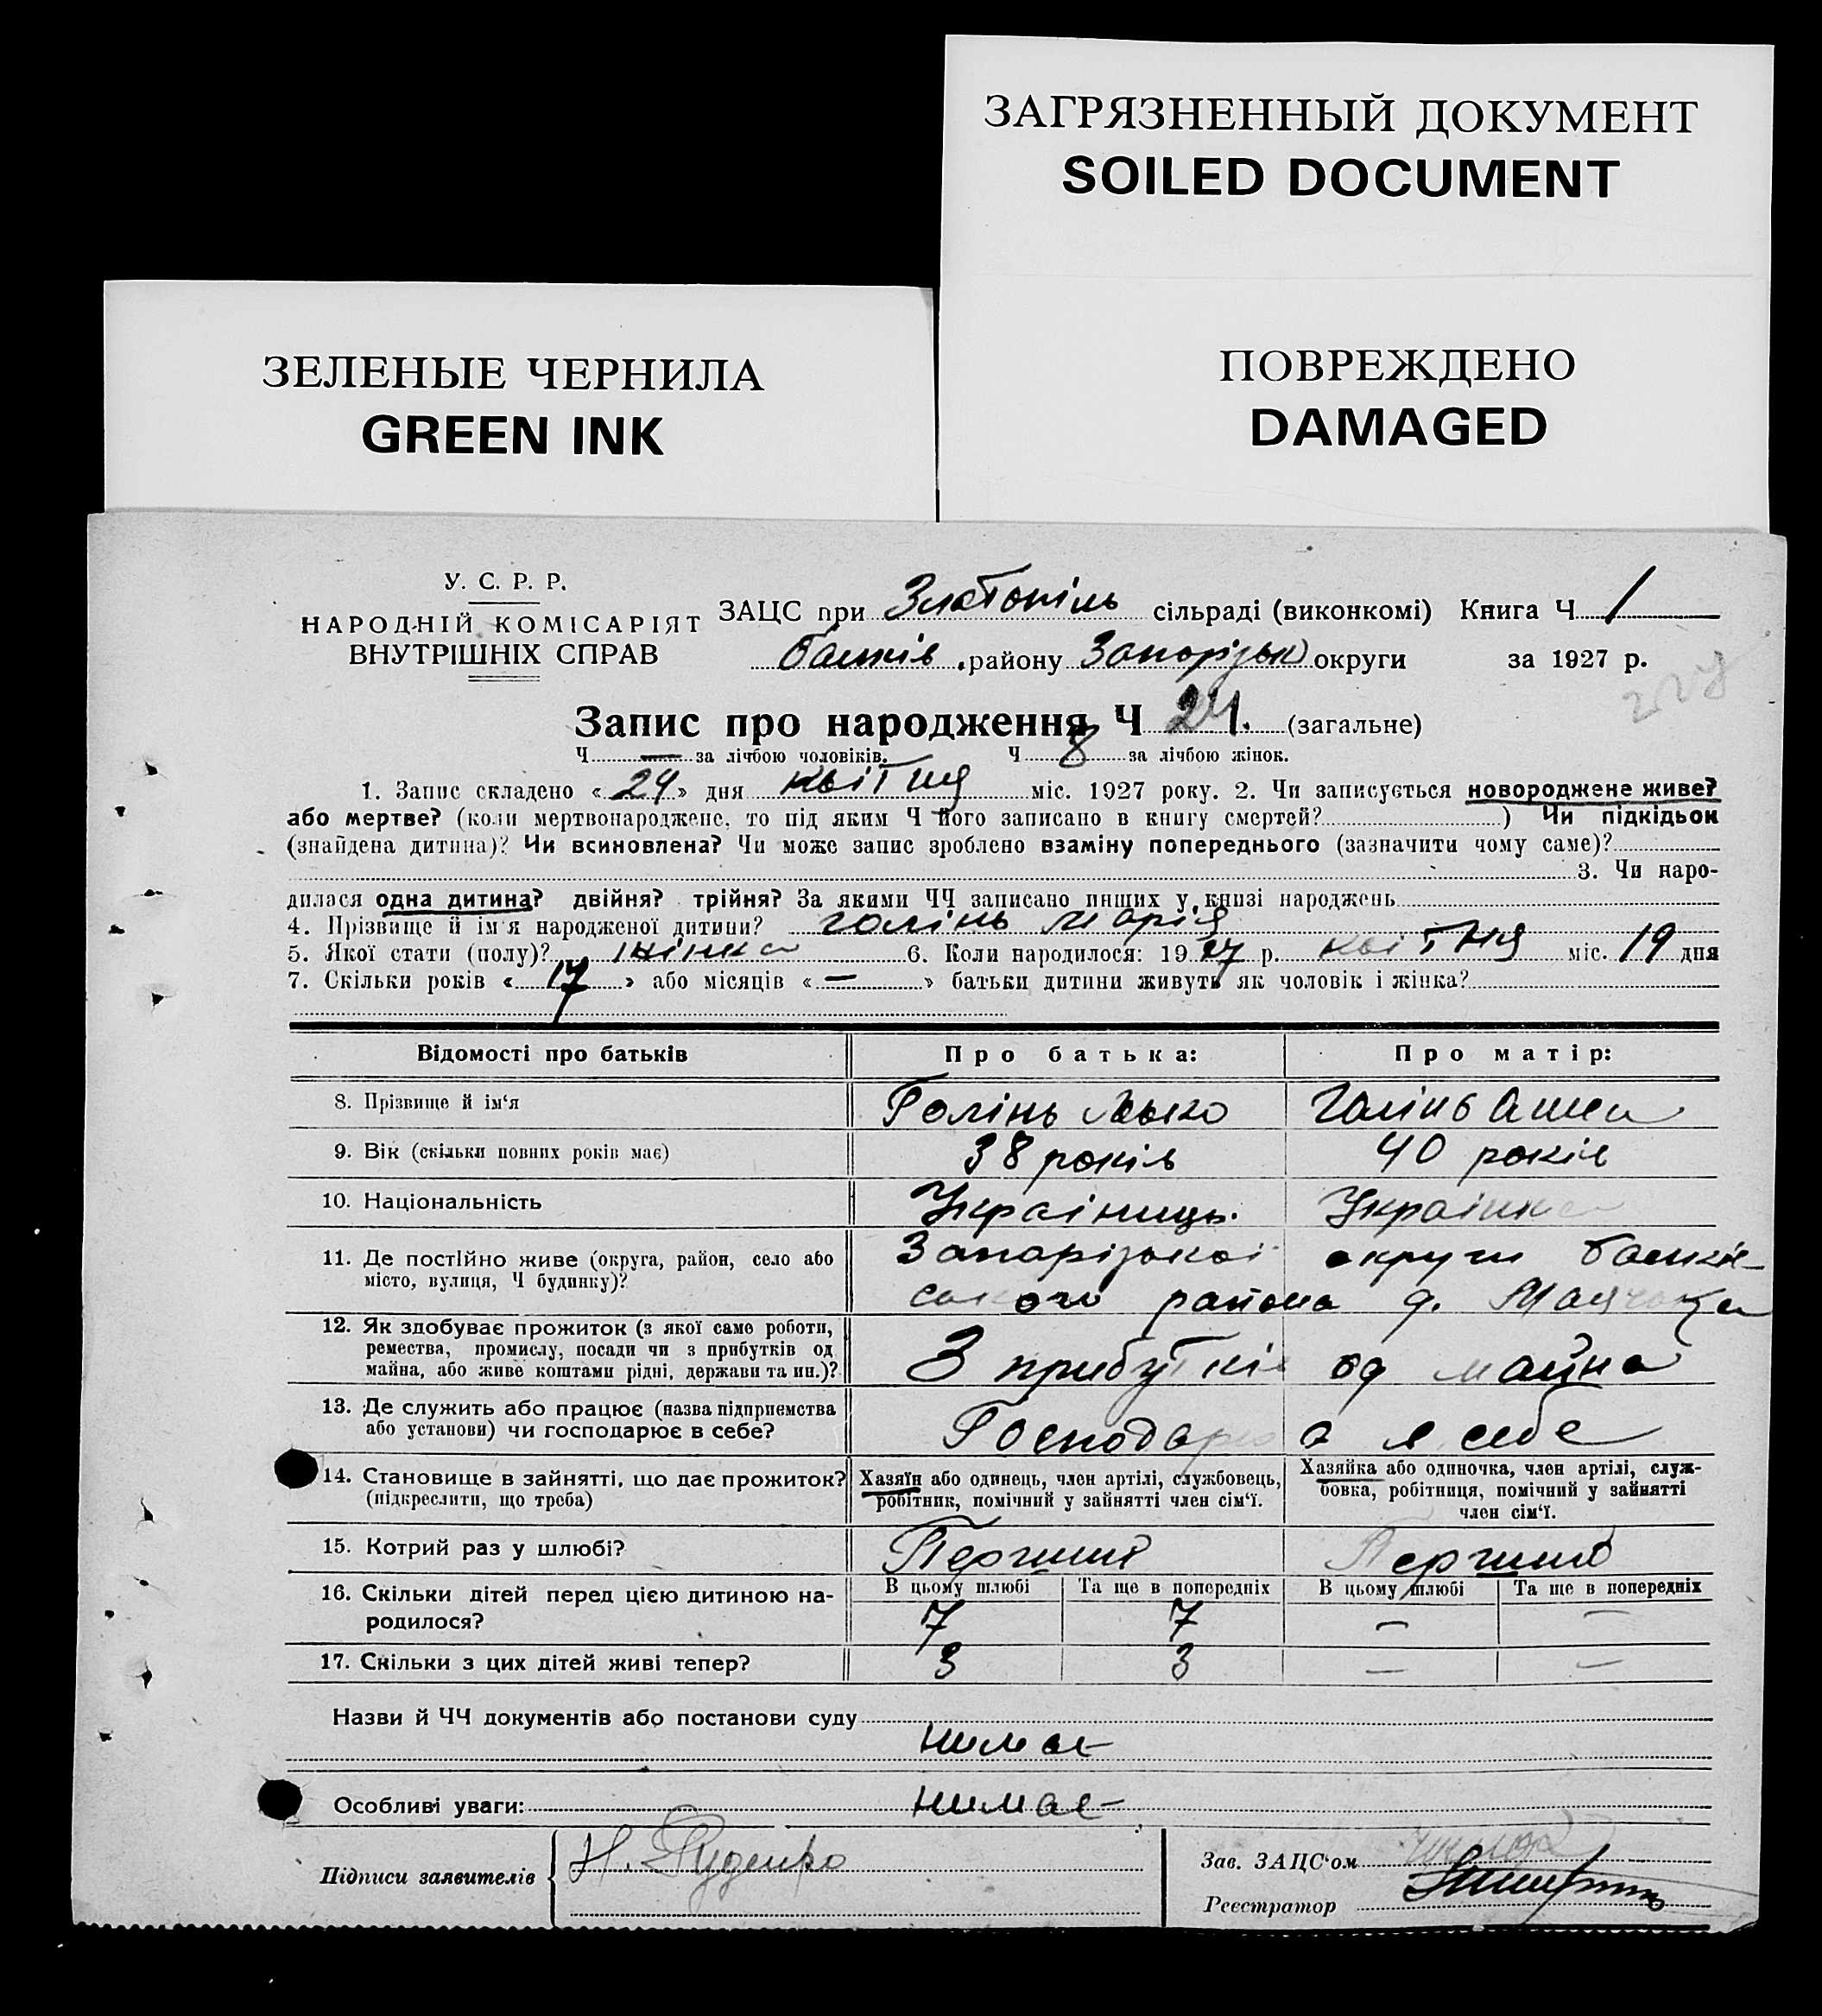 ЗАГРЯЗНЕННЫЙ ДОКУМЕНТ
SOILED DOCUMENT
ЗЕЛЕНЫЕ ЧЕРНИЛА
GREEN INK
ПОВРЕЖДЕНО
DAMAGED
У. С. Р. Р.
НАРОДНІЙ КОМІСАРІЯТ
ВНУТРІШНІХ СПРАВ
ЗАЦС при Златопіль сільраді (виконкомі) Книга Ч 1
району Запорізьк округи за 1927 р.
227
Запис про народження Ч 21. (загальне)
Ч — за лічбою чоловіків. Ч 8 за лічбою жінок.
1. Запис складено « 24 » дня квітня міс. 1927 року. 2. Чи записується новороджене живе?
або мертве? (коли мертвонароджене, то під яким Ч його записано в книгу смертей? ) Чи підкідьок
(знайдена дитина)? Чи всиновлена? Чи може запис зроблено взаміну попереднього (зазначити чому саме)?
3. Чи наро-
дилася одна дитина? двійня? трійня? За якими ЧЧ записано инших у книзі народжень
4. Прізвище й ім'я народженої дитини? Голінь Марія
5. Якої стати (полу)? жінка 6. Коли народилося: 19 27 р. квітня міс. 19 дня
7. Скільки років « 17 » або місяців « — » батьки дитини живуть як чоловік і жінка?
Відомості про батьків Про батька: Про матір:
8. Прізвище й ім'я Голінь Голінь
9. Вік (скільки повних років має) 38 років 40 років
10. Національність Українць. Українка
11. Де постійно живе (округа, район, село або Запорізькоі округи
місто, вулиця, Ч будинку)? района д.
12. Як здобуває прожиток (з якої само роботи,
ремества, промислу, посади чи з прибутків од З прибутків од майна
майна, або живе коштами рідні, держави та ин.)?
13. Де служить або працює (назва підприємства
або установи) чи господарює в себе? Господарює в себе
14. Становище в зайнятті, що дає прожиток? Хазяїн або одинець, член артілі, службовець, Хазяйка або одиночка, член артілі, служ-
(підкреслити, що треба) робітник, помічний у зайнятті член сім'ї. бовка, робітниця, помічний у зайнятті
член сім'ї.
15. Котрий раз у шлюбі? Перший Перший
16. Скільки дітей перед цією дитиною на- В цьому шлюбі Та ще в попередніх В цьому шлюбі Та ще в попередніх
родилося? 7 7 — —
17. Скільки з цих дітей живі тепер? 3 3 — —
Назви й ЧЧ документів або постанови суду
нимає
Особливі уваги: нимає
Підписи заявителів Н. Руденко
Зав. ЗАЦС'ом
Реєстратор